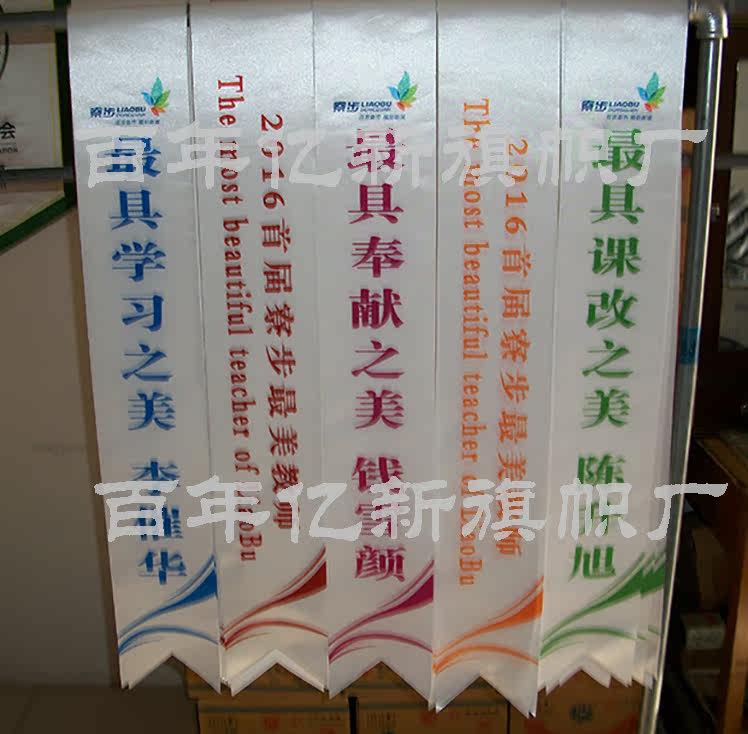 寮步 LIAOBU
最具学习之美 李 华
2016首届寮步最美教师
The most beautiful teacher of LiaoBu
寮步 LIAOBU
最具奉献之美 钱雪颜
2016首届寮步最美教师
The most beautiful teacher of LiaoBu
寮步 LIAOBU
最具课改之美 陈 旭
百年亿新旗帜厂
百年亿新旗帜厂
会